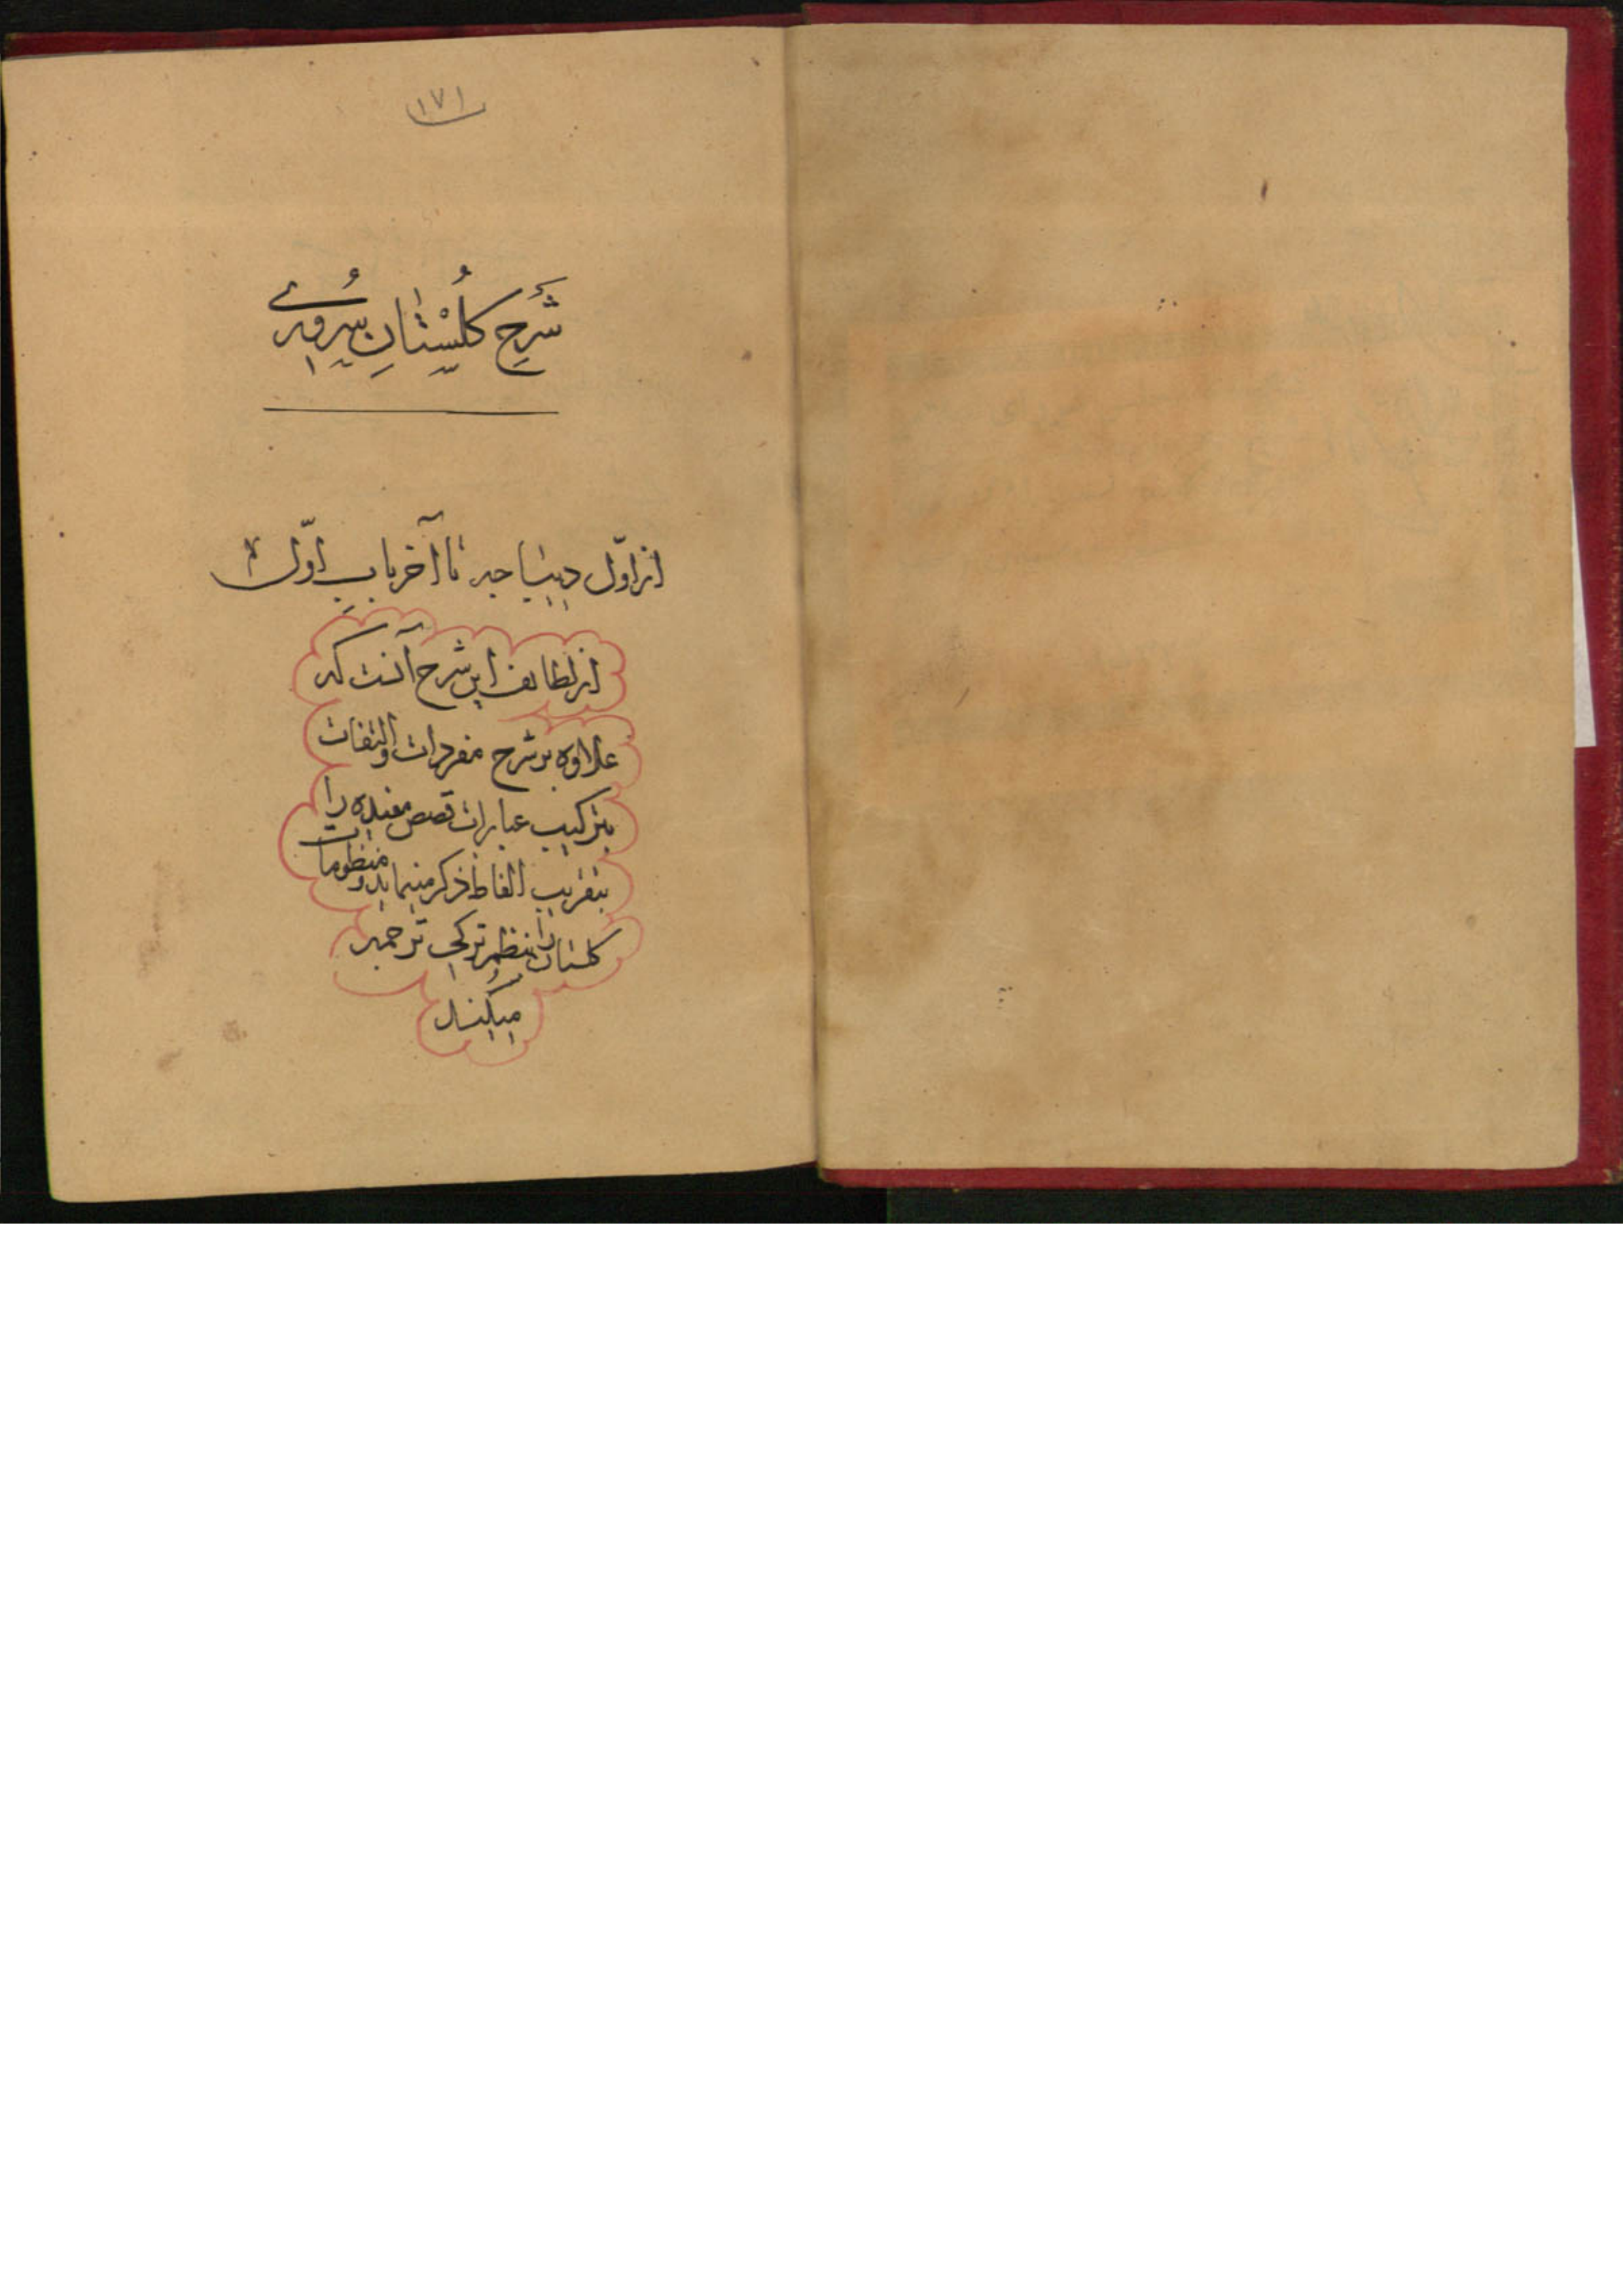 ١٧١
شَرحِ كلُسْتٰانِ سُرورُے
از اوّل ديباجه تا آخر بابِ اوّل
از لطائف اين شرح آنست كه
علاوه بر شرح مفردات والتفات
بتركيب عبارات قصص مفيده را
بتقريب الفاظ ذكر مينمايد و منظومات
كلستان را بنظم تركى ترجمه
ميكند